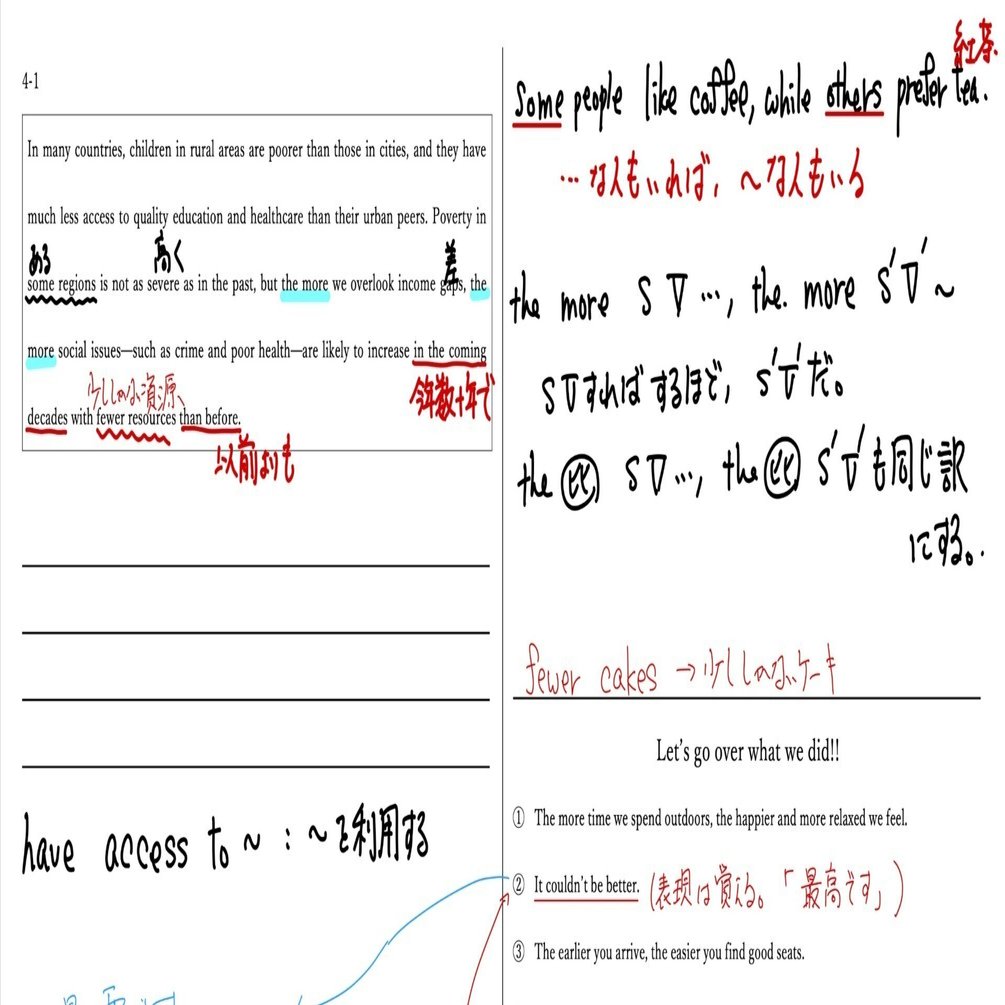 4-1
In many countries, children in rural areas are poorer than those in cities, and they have
much less access to quality education and healthcare than their urban peers. Poverty in
ある 高く 差
some regions is not as severe as in the past, but the more we overlook income gaps, the
more social issues—such as crime and poor health—are likely to increase in the coming
少ししかない資源、 今年数十年で
decades with fewer resources than before.
以前よりも
have access to ~ : ~を利用する
紅茶
Some people like coffee, while others prefer tea.
…な人もいれば, ~な人もいる
the more S V …, the. more S'V' ~
SVすればするほど, S'V'だ。
the 比 SV…, the 比 S'V'も同じ訳
にする。
fewer cakes → 少ししかないケーキ
Let's go over what we did!!
① The more time we spend outdoors, the happier and more relaxed we feel.
② It couldn't be better. (表現は覚える。「最高です」)
③ The earlier you arrive, the easier you find good seats.